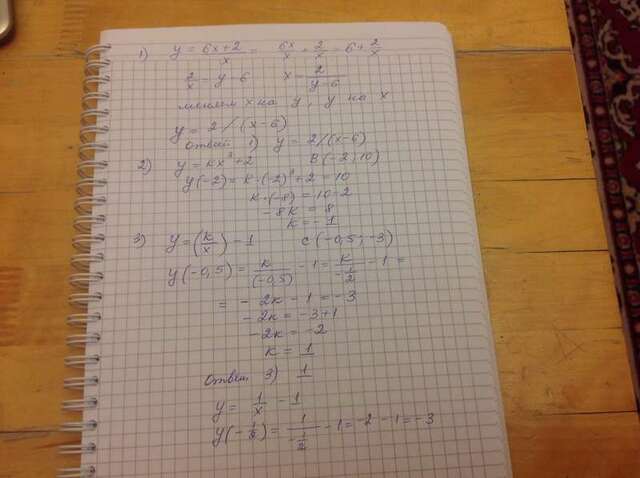 1) y = 6x+2/x = 6x/x + 2/x = 6 + 2/x
2/x = y-6 x = 2/y-6
меняем x на y, y на x
y = 2/(x-6)
Ответ 1) y = 2/(x-6)
2) y = kx³+2 B(-2; 10)
y(-2) = k·(-2)³+2 = 10
k·(-8) = 10-2
-8k = 8
k = -1
3) y = (k/x) - 1 C(-0,5; -3)
y(-0,5) = k/(-0,5) - 1 = k/-1/2 - 1 =
= -2k - 1 = -3
-2k = -3+1
-2k = -2
k = 1
Ответ 3) 1
y = 1/x - 1
y(-1/2) = 1/-1/2 - 1 = -2 - 1 = -3